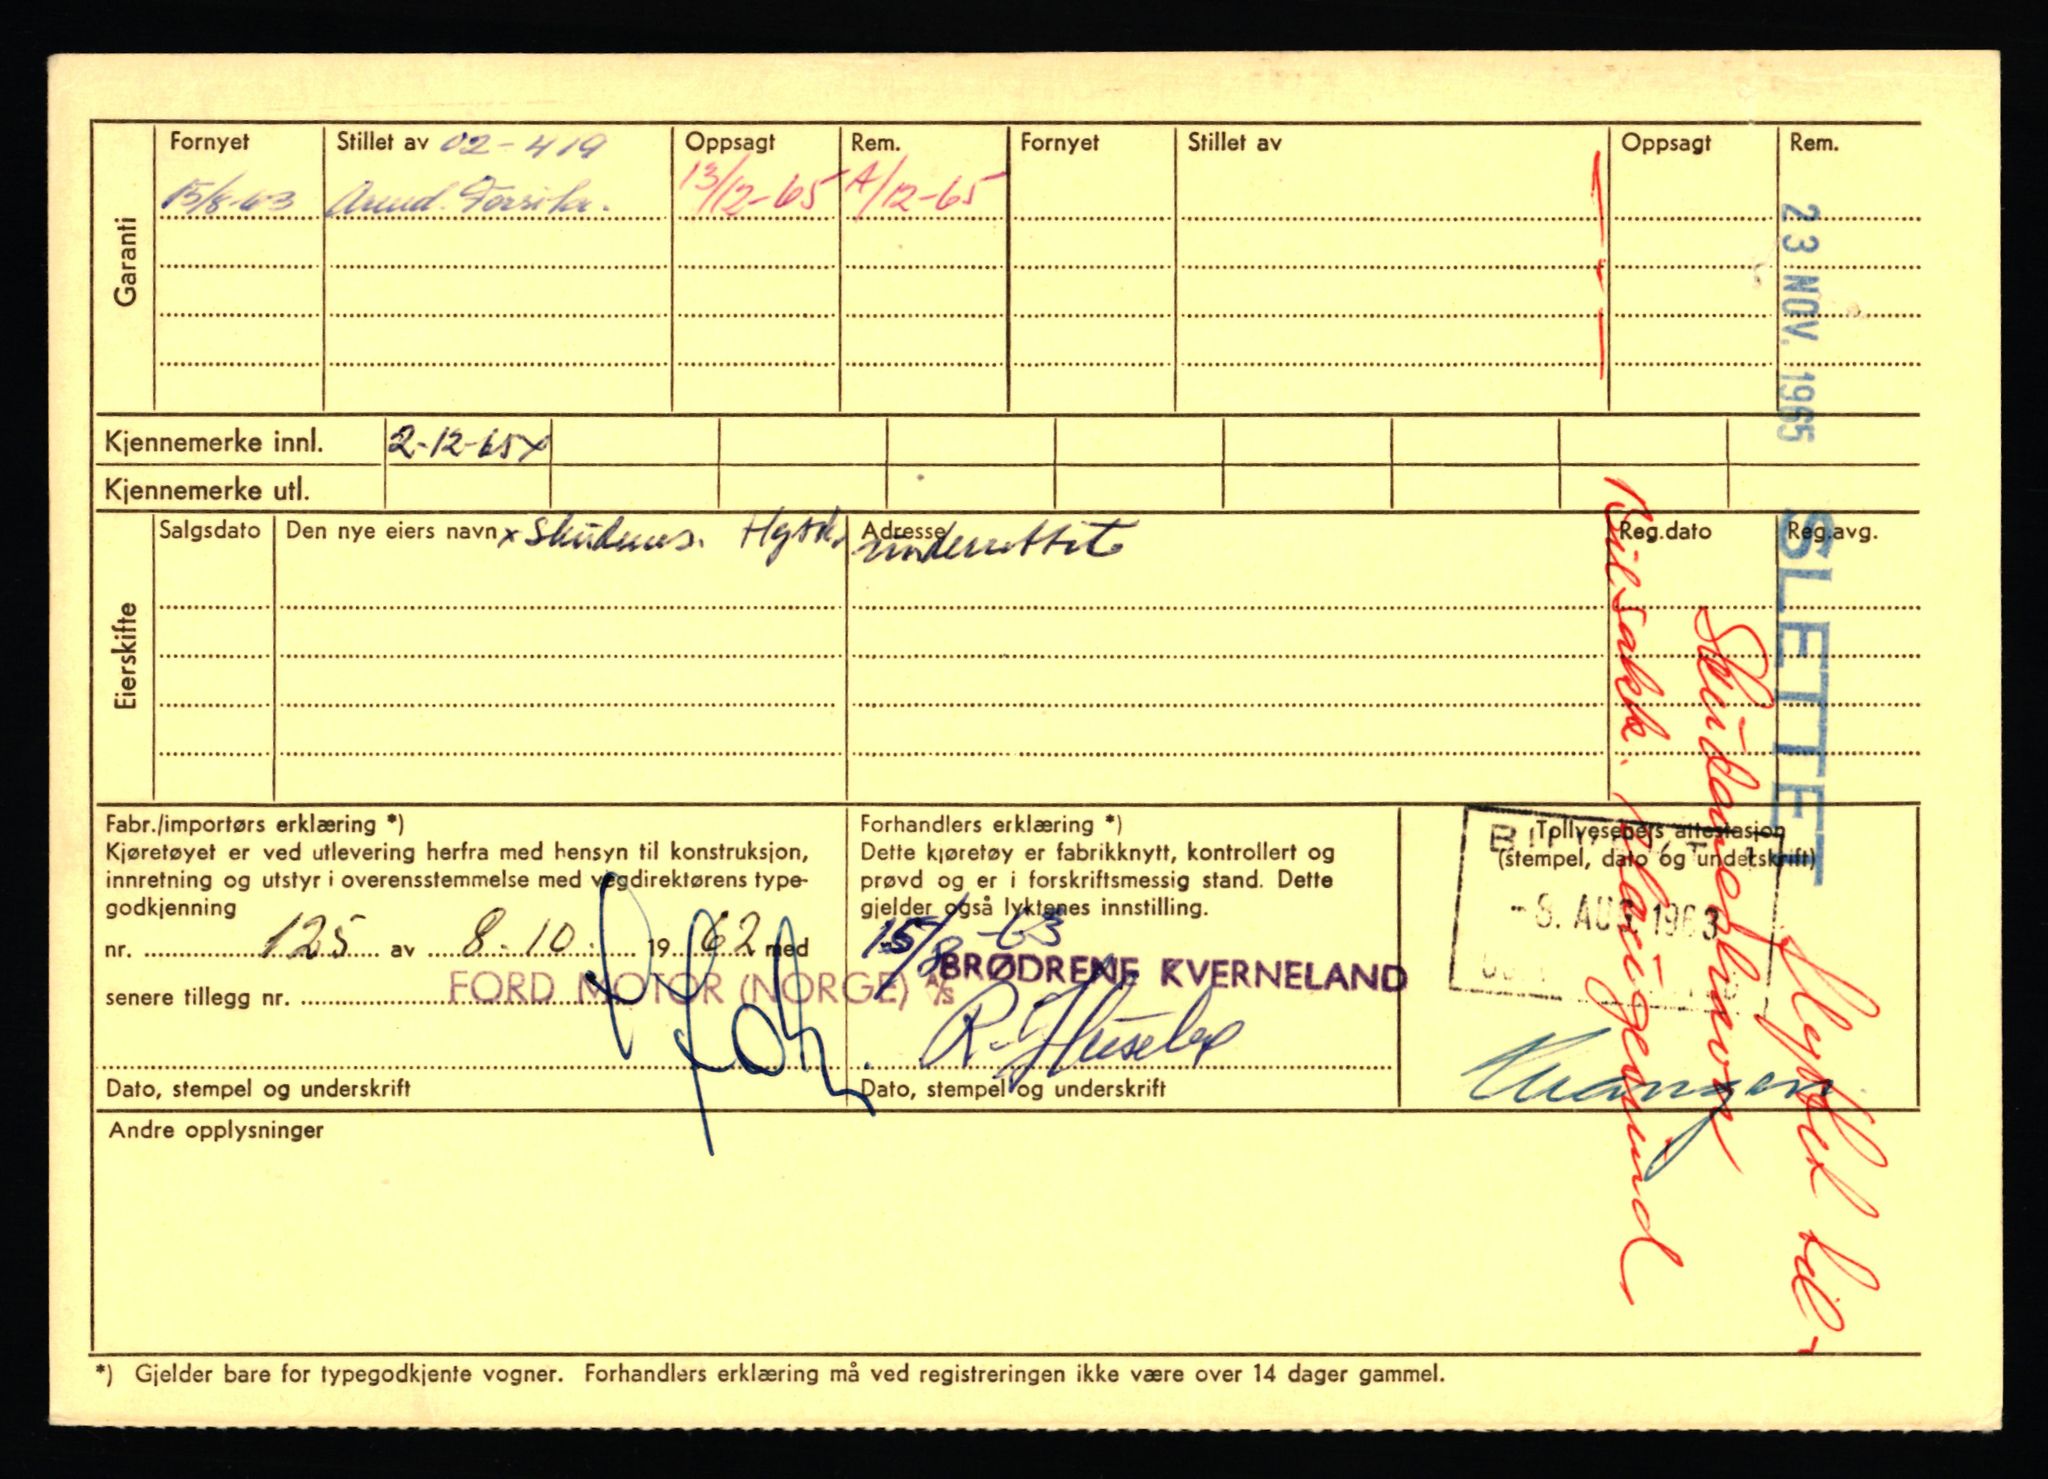 Garanti
Fornyet Stillet av 02-419 Oppsagt Rem. Fornyet Stillet av Oppsagt Rem.
15/8-63 13/12-65 A/12-65
23 NOV. 1965
SLETTET
Kjennemerke innl. 2-12-65x
Kjennemerke utl.
Eierskifte
Salgsdato Den nye eiers navn x Skudenes. Adresse underrettet Reg.dato Reg.avg.
Fabr./importørs erklæring *)
Kjøretøyet er ved utlevering herfra med hensyn til konstruksjon,
innretning og utstyr i overensstemmelse med vegdirektørens type-
godkjenning
nr. 125 av 8.10. 1962 med
senere tillegg nr.
FORD MOTOR (NORGE) A/S
Dato, stempel og underskrift
Forhandlers erklæring *)
Dette kjøretøy er fabrikknytt, kontrollert og
prøvd og er i forskriftsmessig stand. Dette
gjelder også lyktenes innstilling.
15/8-63
BRØDRENE KVERNELAND
R. Huseby
Dato, stempel og underskrift
Tollvesenets attestasjon
(stempel, dato og underskrift)
-8. AUG 1963
Slyttet til
Skudeneshavn
Bilsakk. Haugesund
Andre opplysninger
*) Gjelder bare for typegodkjente vogner. Forhandlers erklæring må ved registreringen ikke være over 14 dager gammel.